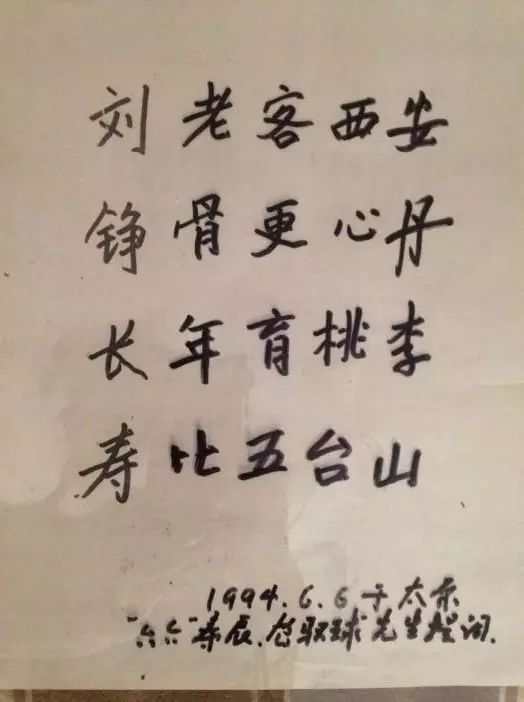 刘老客西安
铮骨更心丹
长年育桃李
寿比五台山
1994.6.6于太原
"六六"寿辰.总驭球先生题词.